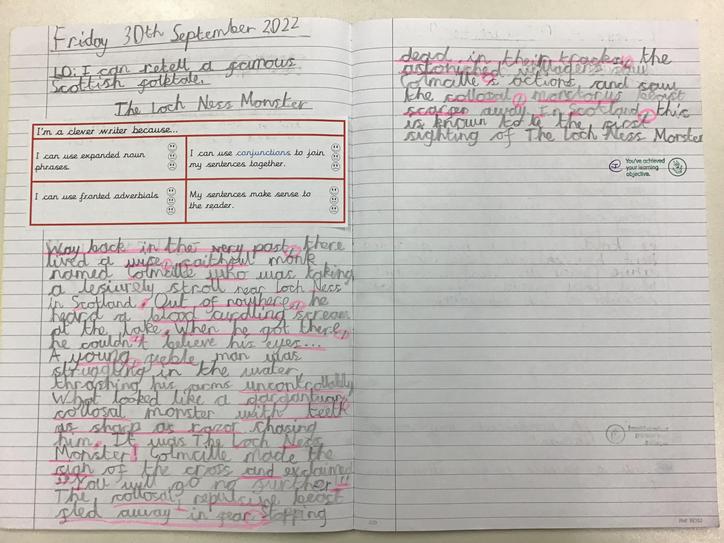 Friday 30th September 2022
LO: I can retell a famous
Scottish folktale.
The Loch Ness Monster
I'm a clever writer because...
I can use expanded noun
phrases.
I can use conjunctions to join
my sentences together.
I can use fronted adverbials
My sentences make sense to
the reader.
Way back in the very past, there
lived a wise, faithull monk
named Colmcille who was taking
a lesiurely stroll near Loch Ness
in Scotland. Out of nowhere, he
heard a blood curdling scream
at the lake. When he got there,
he couldn't believe his eyes...
A young, feeble man was
struggling in the water,
thrashing his arms uncontrollably
What looked like a gargantuan,
colossal monster with teeth
as sharp as razor chasing
him. It was The Loch Ness
Monster! Colmcille made the
sign of the cross and exclaimed
"You will go no further!!
The collosal, repulsive beast
fled away in fear. Stopping
dead in their tracks, the
astonished villagers saw
Colmcille's actions and saw
the collosal, monstorus beast
scarper away. In Scotland, this
is known to be the first
sighting of The Loch Ness Monster
You've achieved
your learning
objective.